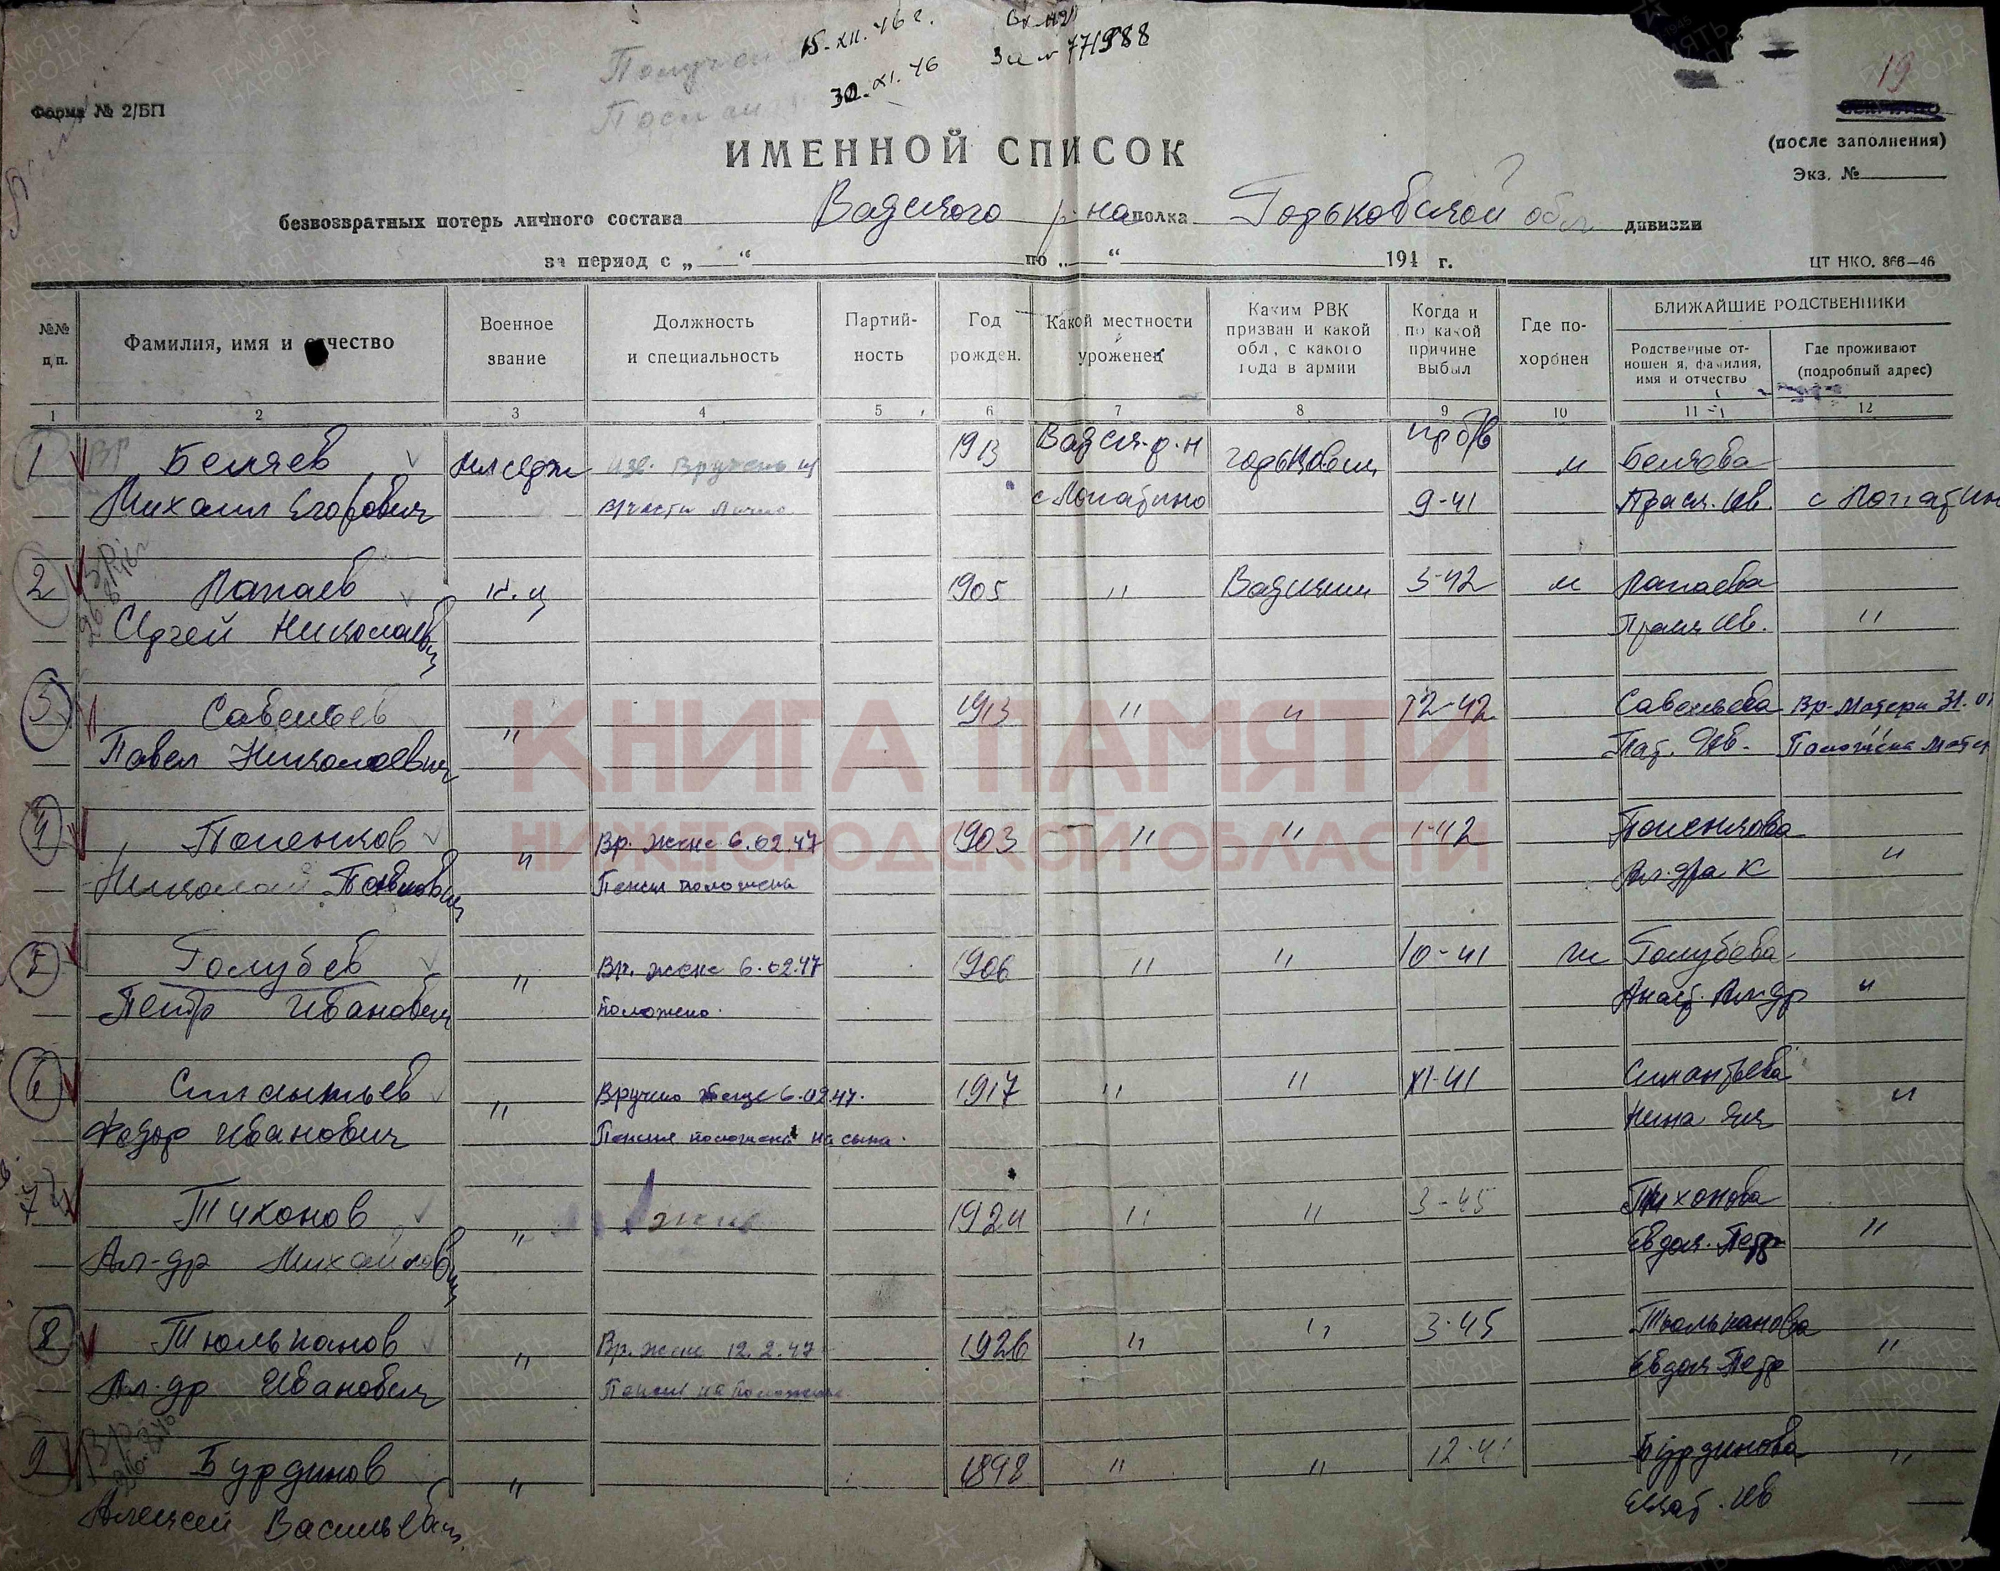 15-XII.46 г.
Вх-1121
30.XI.46
За № 771988
19
Форма № 2/БП
(после заполнения)
Экз. №
ИМЕННОЙ СПИСОК
безвозвратных потерь личного состава Вадского р-на полка Горьковской обл дивизии
за период с „ “ по „ “ 194 г.
ЦТ НКО. 866—46
№№ п,п.
Фамилия, имя и отчество
Военное звание
Должность и специальность
Партий-ность
Год рожден.
Какой местности уроженец
Каким РВК призван и какой обл, с какого года в армии
Когда и по какой причине выбыл
Где по-хоронен
БЛИЖАЙШИЕ РОДСТВЕННИКИ
Родственные от-ношен я, фамилия, имя и отчество
Где проживают (подробный адрес)
1 2 3 4 5 6 7 8 9 10 11 12
1 Беляев мл серж 1913 Вадск-р-н Горьковск пр б/в Беляева
Михаил Егорович с Лопатино 9-41 Праск. Ив. с Лопатин
2 Лапаев к.ц 1905 " Вадским 3-42 Лапаева
Сергей Николаевич Праск Ив. "
3 Савельев " 1913 " " 12-42 Савельева Вр. Матери 31.01
Павел Николаевич
4 Поленков " Вр. жене 6.02.47 1903 " " 1-42 Поленкова
Николай Павлович Пенсия положена Ал-дра К "
5 Голубев " Вр. жене 6.02.47 1906 " " 10-41 Голубева
Петр Иванович Положено. Наст. Ал-др "
6 Силантьев " Вручено жене 6.02.47. 1917 " " XI-41 Силантьева
Федор Иванович Пенсия положена на сына. Нина Як "
7 Тихонов " жив 1924 " " 3-45 Тихонова
Ал-др Михайлович Евдок. Петр "
8 Тюльпанов " Вр. жене 12.2.47 1926 " " 3-45 Тюльпанова
Ал-др Иванович Евдок Петр "
9 Бурдинов " 1898 " " 12-41 Бурдинова "
Алексей Васильевич Елзат. Ив
КНИГА ПАМЯТИ
НИЖЕГОРОДСКОЙ ОБЛАСТИ
ПАМЯТЬ НАРОДА